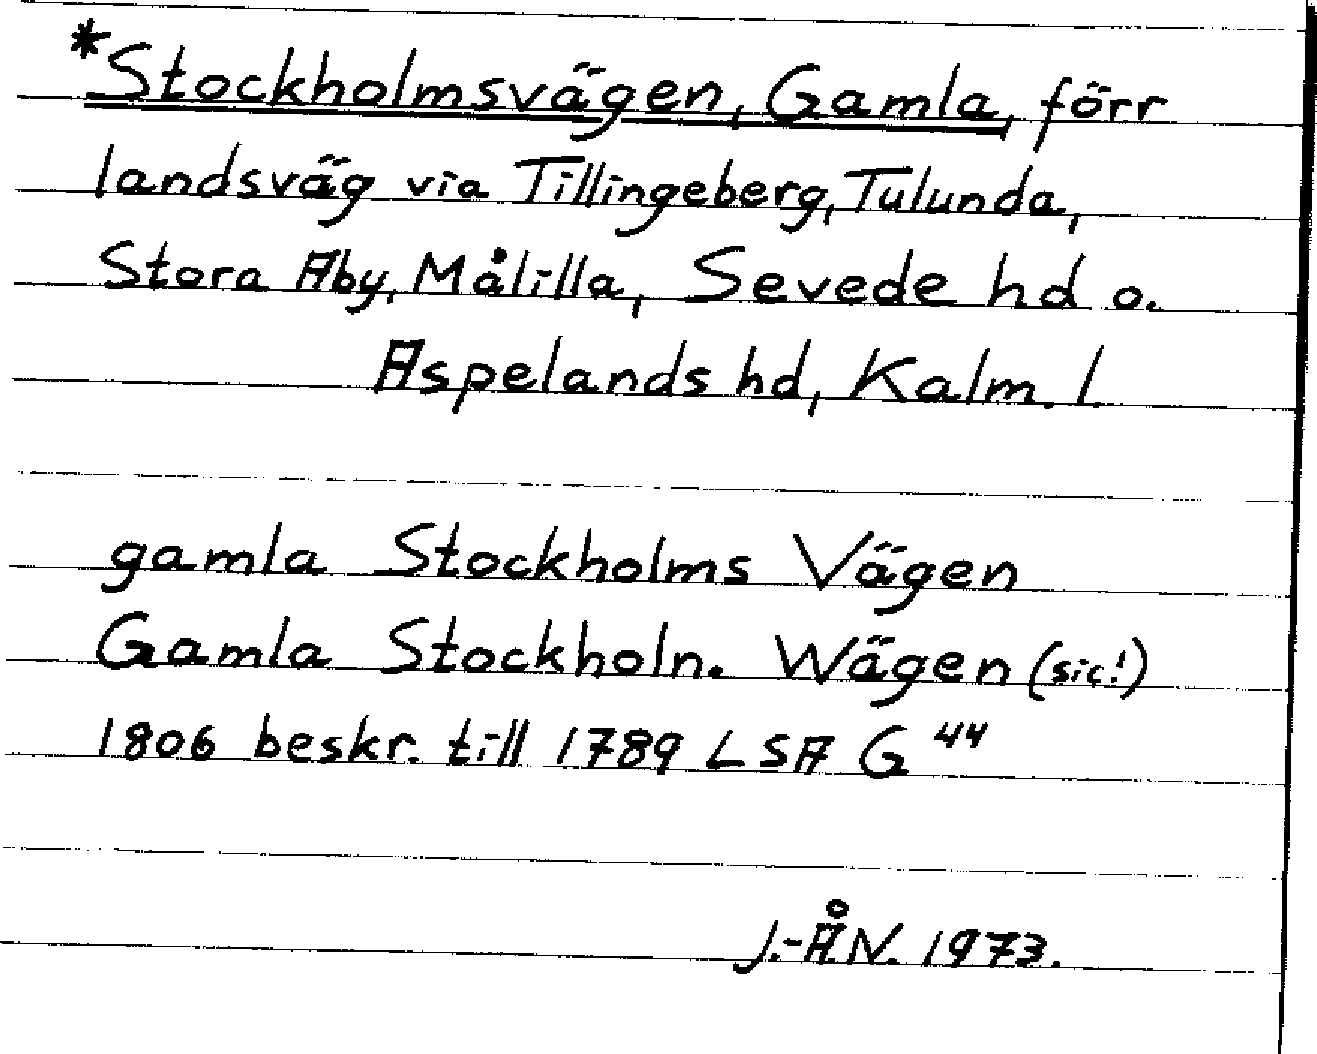 *Stockholmsvägen, Gamla, förr
landsväg via Tillingeberg, Tulunda,
Stora Aby, Målilla, Sevede hd o.
Aspelands hd, Kalm. l.
gamla Stockholms Vägen
Gamla Stockholn. Wägen (sic!)
1806 beskr. till 1789 LSA G 44
J.-Å.N. 1973.